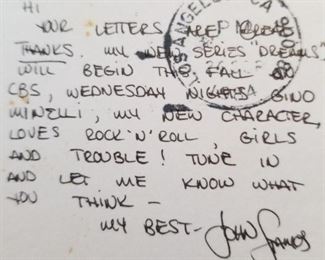 HI
YOUR LETTERS ARE GREAT
THANKS. MY NEW SERIES 'DREAMS'
WILL BEGIN THIS FALL ON
CBS, WEDNESDAY NIGHTS. GINO
MINELLI, MY NEW CHARACTER,
LOVES ROCK 'N' ROLL, GIRLS
AND TROUBLE! TUNE IN
AND LET ME KNOW WHAT
YOU THINK –
MY BEST – JOHN STAMOS
ANGELES, CA
PM